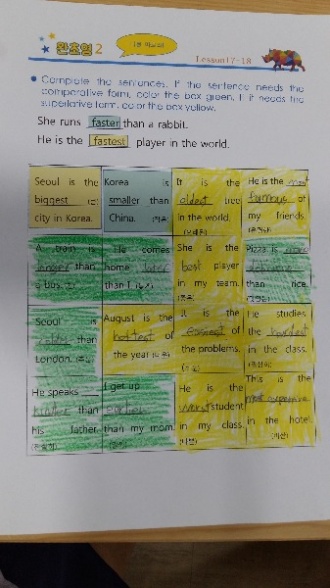 완초영 2
Lesson17-18
Complete the sentences. If the sentence needs the
comparative form, color the box green. If it needs the
superlative form, color the box yellow.
She runs faster than a rabbit.
He is the fastest player in the world.
Seoul is the
biggest
city in Korea.
Korea is
smaller than
China.
It is the
oldest tree
in the world.
He is the most
famous of
my friends.
A train is
longer than
a bus.
He comes
home later
than I
She is the
best player
in my team.
Pizza is more
delicious
than rice.
Seoul is
than
London.
August is the
hottest of
the year
It is the
easiest of
the problems.
He studies
the hardest
in the class.
He speaks
than
his father.
I get up
earlier
than my mom.
He is the
worst student
in my class.
This is the
most expensive
in the hotel.